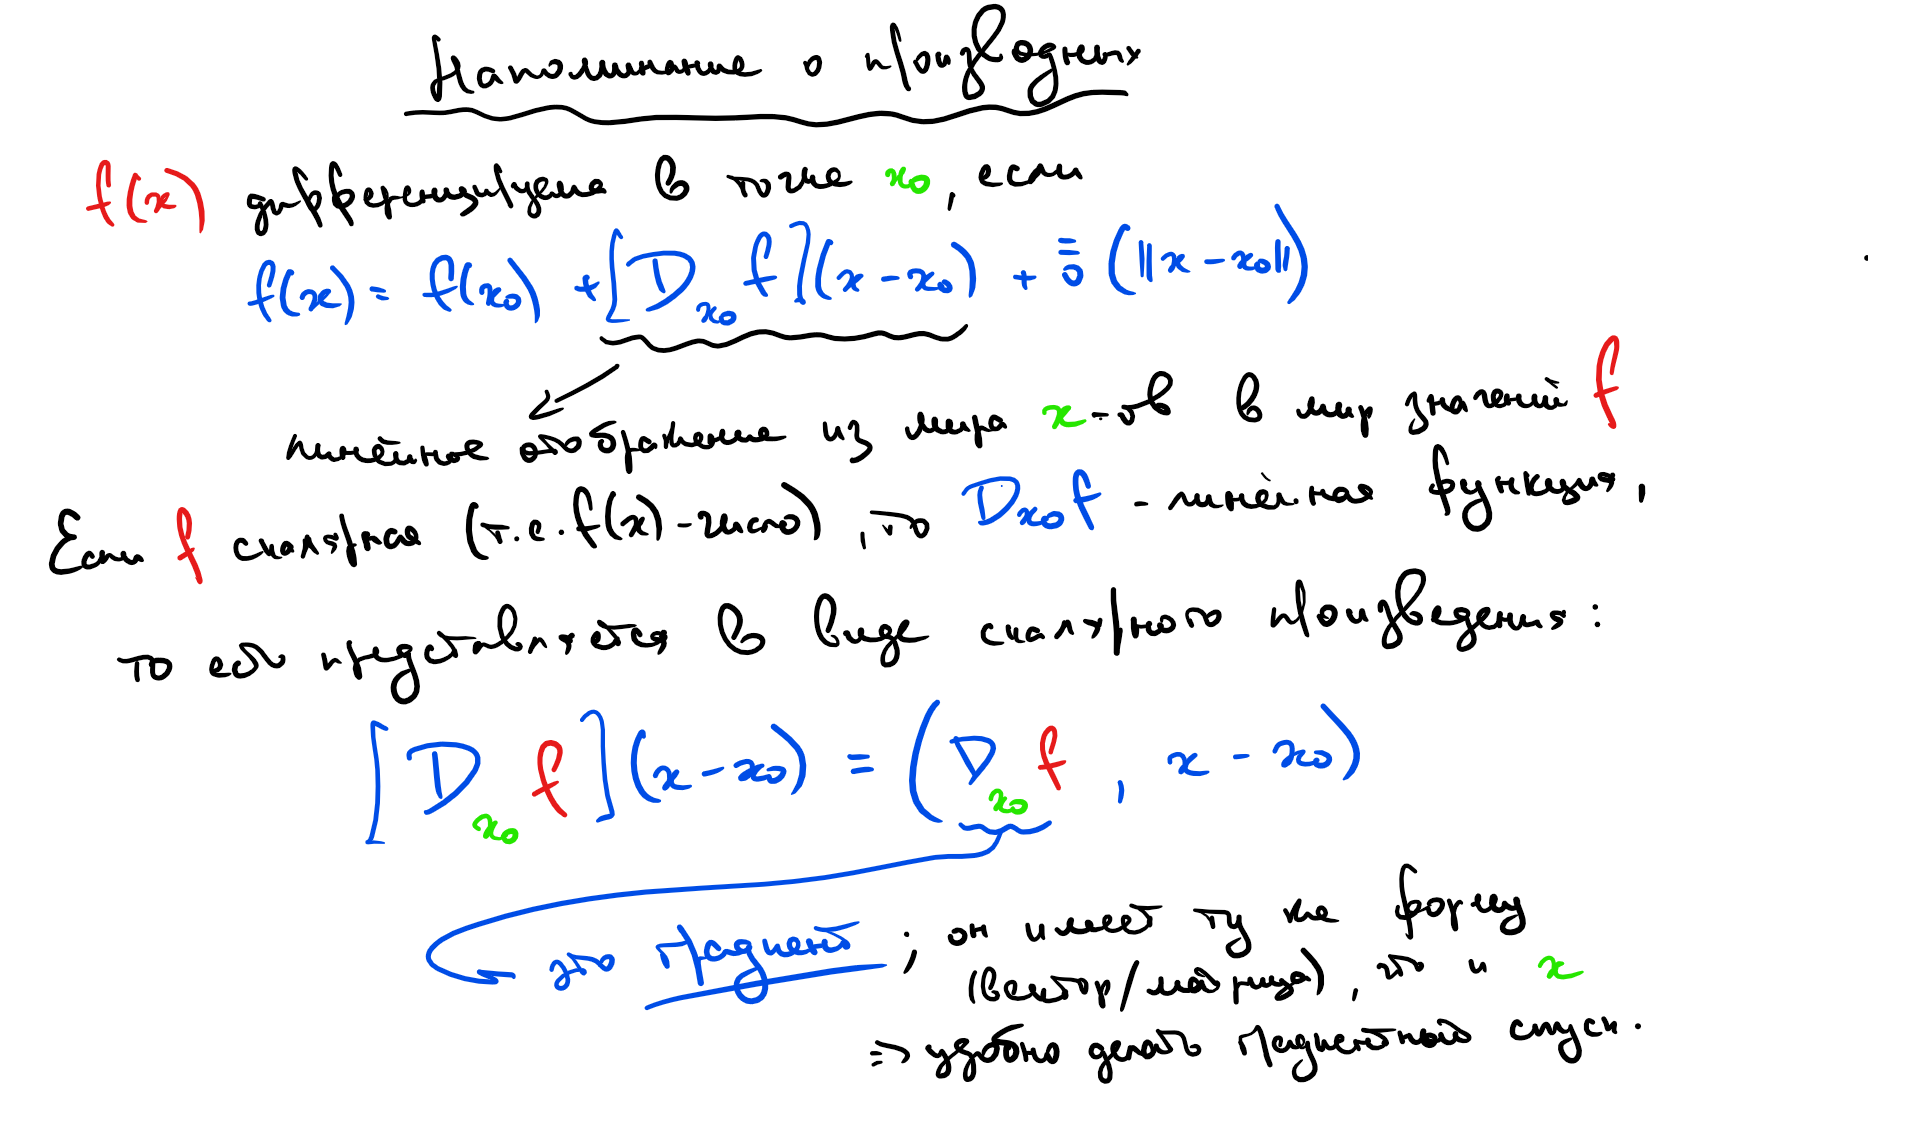 Напоминание о производных
f(x) дифференцируема в точке x₀, если
f(x) = f(x₀) + [D_{x₀} f](x − x₀) + ō̄(‖x − x₀‖)
линейное отображение из мира x-ов в мир значений f
Если f скалярная (т.е. f(x) - число), то D_{x₀}f - линейная функция,
то есть представляется в виде скалярного произведения:
[D_{x₀} f](x − x₀) = (∇_{x₀} f, x − x₀)
это градиент; он имеет ту же форму
(вектор/матрица), что и x
⇒ удобно делать градиентный спуск.